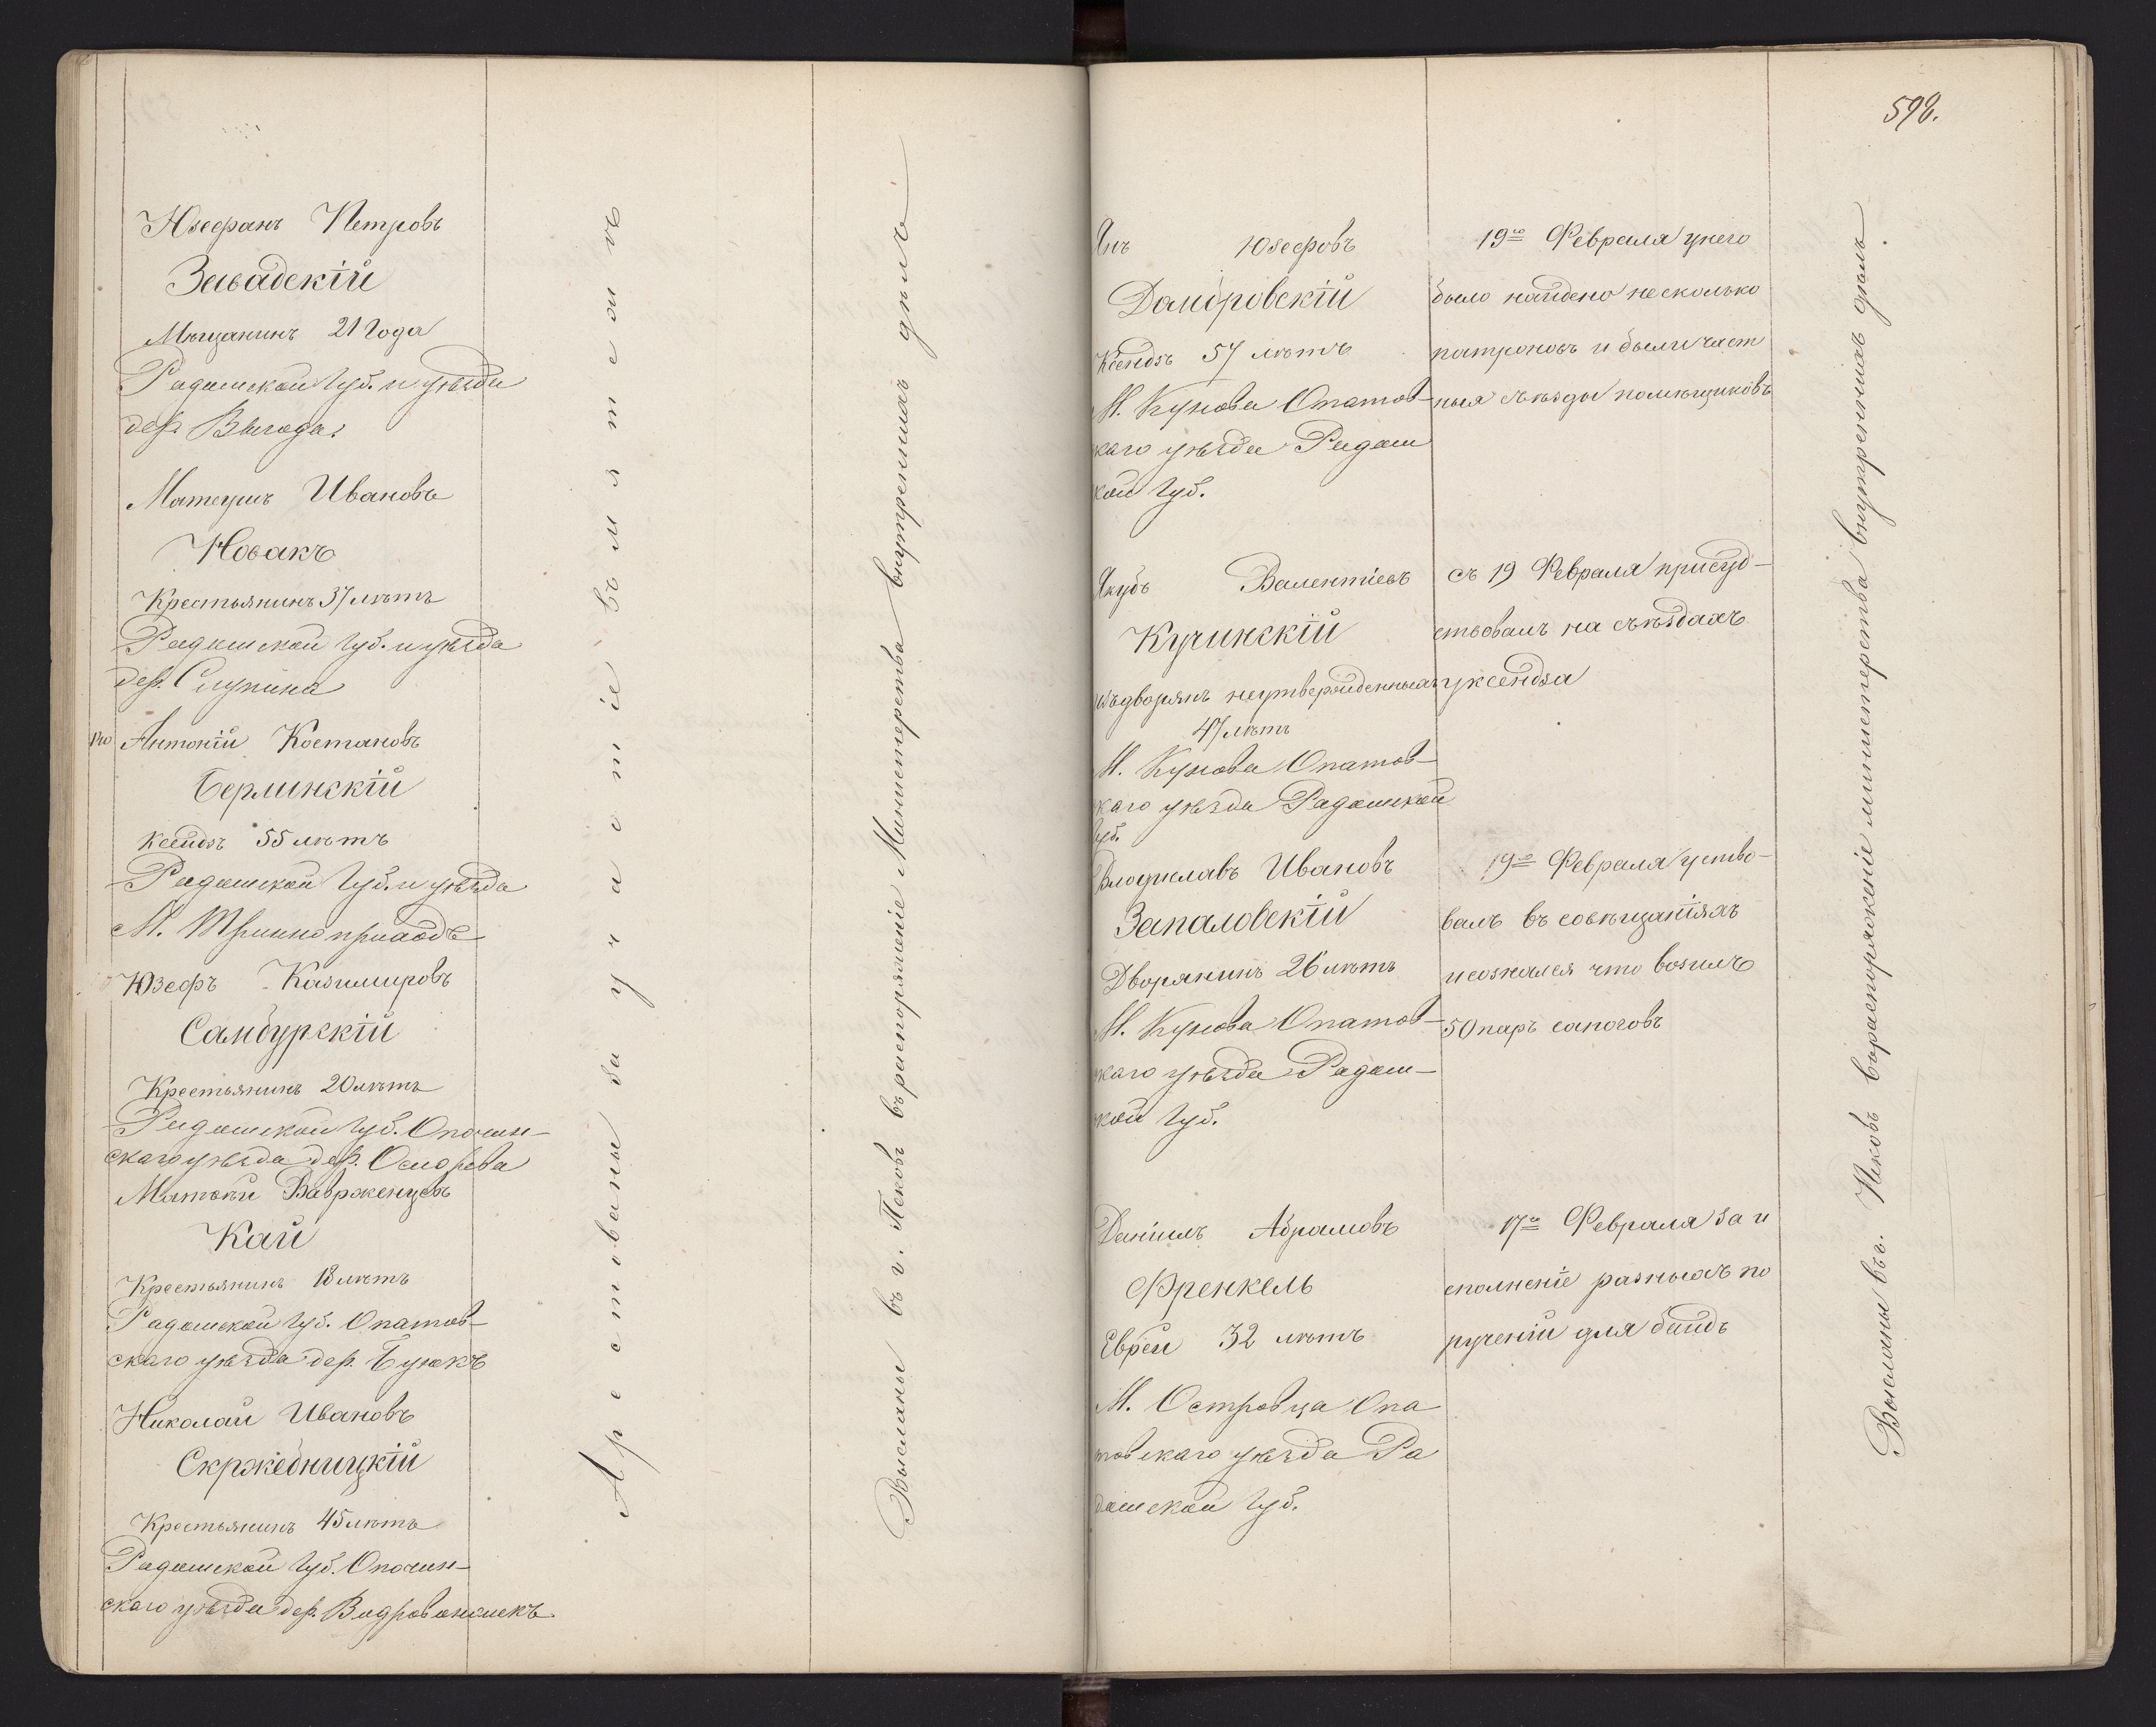 Юзефанъ Петровъ
Завадскій
Мѣщанинъ 21 Года
Радомской Губ. и уѣзда
дер. Выгода.
Матеушъ Иванова
Новакъ
Крестьянинъ 37 лѣтъ
Радомской Губ. и уѣзда
дер. Слупина
Антоній Костановъ
Берлинскій
Ксендзъ 55 лѣтъ
Радомской Губ. и уѣзда
М. приходъ
Юзефъ Казимировъ
Самбурскій
Крестьянинъ 20 лѣтъ
Радомской Губ. Опочин-
скаго уѣзда дер.
Вавrженцевъ
Кай
Крестьянинъ 18 лѣтъ
Радомской Губ. Опатов-
скаго уѣзда дер.
Николай Ивановъ
Скржебницкій
Крестьянинъ 45 лѣтъ
Радомской Губ. Опочин-
скаго уѣзда дер.
Арестованы за участіе въ мятежѣ
Высланы въ г. Псковъ въ распоряженіе Министерства внутреннихъ дѣлъ
598.
Янъ Юзефовъ
Домбровскій
Ксендзъ 57 лѣтъ
М. Кунова Опатов-
скаго уѣзда Радом
кой Губ.
19го Февраля у него
было найдено несколько
патроновъ и были част
ныя съѣзды помѣщиковъ
Якубъ Валентіевъ
Кучинскій
изъ дворянъ неутвержденныхъ
47 лѣтъ
М. Кунова Опатов-
скаго уѣзда Радомской
Губ.
съ 19 Февраля присуд-
ствовалъ на съѣздахъ
у ксендза
Влодиславъ Ивановъ
Запаловскій
Дворянинъ 26 лѣтъ
М. Кунова Опатов-
скаго уѣзда Радом-
кой Губ.
19го Февраля уство-
валъ въ совѣщаніяхъ
и сознался что возилъ
50 паръ сапоговъ
Даніилъ Абрамовъ
Френкель
Еврей 32 лѣтъ
М. Островца Опа
товскаго уѣзда Ра
домской Губ.
17го Февраля за и
сполненіе разныхъ по
рученій для бандъ
Высланы въ г. Псковъ въ распоряженіе министерства внутреннихъ дѣлъ.